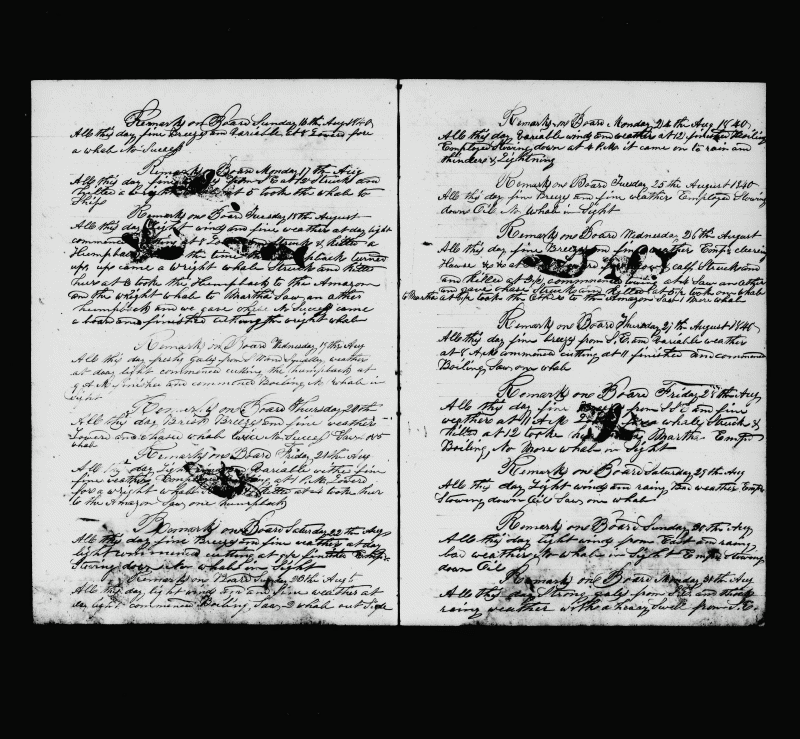 Remarks on Board Sunday 16th Aug 1840
All this day fine Breeze and Variable at 8 Lowed fore
a whale No Success
Remarks on Board Monday 17th Aug
All this day fine at 12 Struck and
killed a took the whale to
Ship
Remarks on Board Tuesday 18th August
All this day light wind and fine weather at day light
commenced at 8 & killed a
Humpback the time back turned
up, up came a wright whale Struck and killed
her at 2 took the Humpback to the Amazon
and the wright whale to Martha Saw an other
humpback and we gave Chase No Success came
a board and finished cutting the wright whale
Remarks on Board Wednesday 19th Aug
All this day fresh gale from Wind Squalley weather
at day light commenced cutting the humpback at
9 AM finished and commenced Boiling No whale in
Sight
Remarks on Board Thursday 20th
All this day Brisk Breeze and fine weather
Lowered and Chased whale twice No Success Saw
whale
Remarks on Board Friday 21th Aug
All this day Light Variable withe fine
fine weather at 1 PM Lowed
for a wright whale killed at 4 took her
to the Amazon Saw one humpback
Remarks on Board Saturday 22th Aug
All this day fine Breeze and fine weather at day
light commenced cutting at finished
Stowing down whale in Sight
Remarks on Board Sunday 23th Aug
All this day light wind and fine weather at
day light commenced Boiling Saw 2 whale out Side
Remarks on Board Monday 24th Aug 1840
All this day Variable wind and weather at 12 finished Boiling
Employed Stowing down at 4 P.M. it came on to rain and
thunder & Lightning
Remarks on Board Tuesday 25th August 1840
All this day fine Breeze and fine weather Employed Stowing
down Oil No whale in Sight
Remarks on Board Wednesday 26th August
All this day fine Breeze and fine weather Emp clearing
Hawse at calf Struck and
and killed at commenced at 4 Saw an other
and gave chase Struck and killed took one whale
to Martha took the Other to the Amazon Saw 1 more whale
Remarks on Board Thursday 27th August 1840
All this day fine breeze from S.E. and Variable weather
at 8 A.M. commenced cutting at 11 finished and commenced
Boiling, Saw one whale
Remarks on Board Friday 28th Aug
All this day fine from and fine
weather at 11 A.M. whale Struck &
killed at 12 tooke Martha Emp
Boiling No More whale in Sight
Remarks on Board Saturday 29th Aug
All this day Light wind and rainy Bad weather Emp
Stowing down Oil Saw one whale
Remarks on Board Sunday 30th Aug
All this day light winds from East and rainy
bad weather No whale in Sight Emp Stowing
down Oil
Remarks on Board Monday 31th Aug
All this day Strong gale from S.E. and thick
rainy weather with a heavy Swell from S.E.